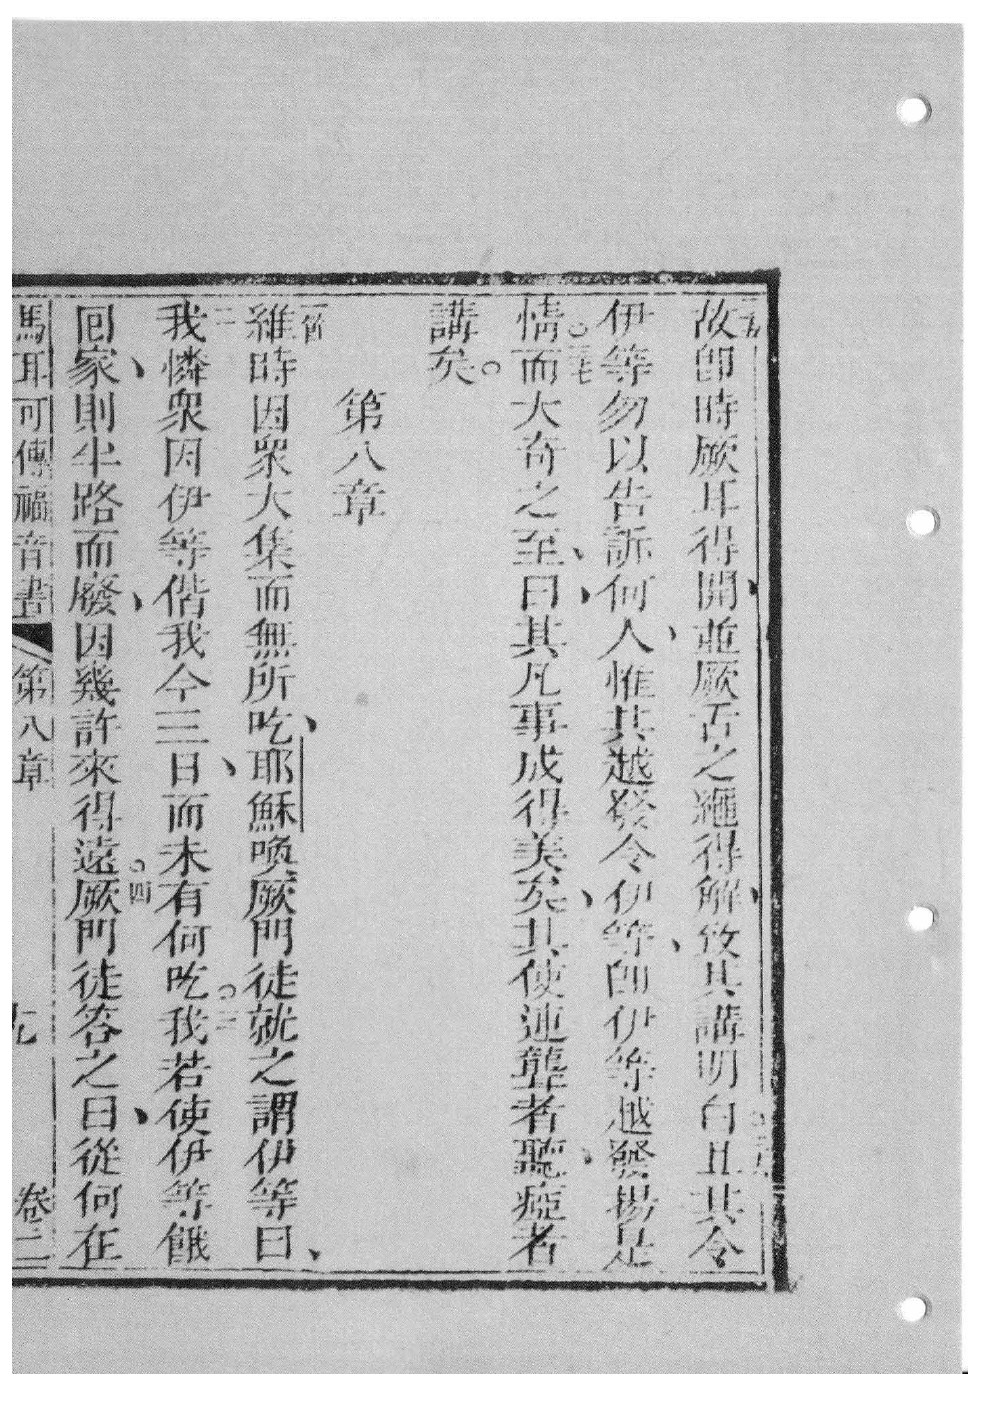 故即時厥耳得開、並厥舌之繩得解、致其講明白。且其令
伊等勿以告訴何人、惟其越發令伊等、即伊等越發揚是
情。三七而大奇之至、曰、其凡事成得美矣、其使連聾者聽、瘂者
講矣。
第八章
一當維時因衆大集而無所吃、耶穌喚厥門徒就之謂伊等曰、
二我憐衆因伊等偕我今三日、而未有何吃。三我若使伊等餓
回家、則半路而廢、因幾許來得遠。四厥門徒答之曰、從何在
馬耳可傳福音書 第八章 九 卷二